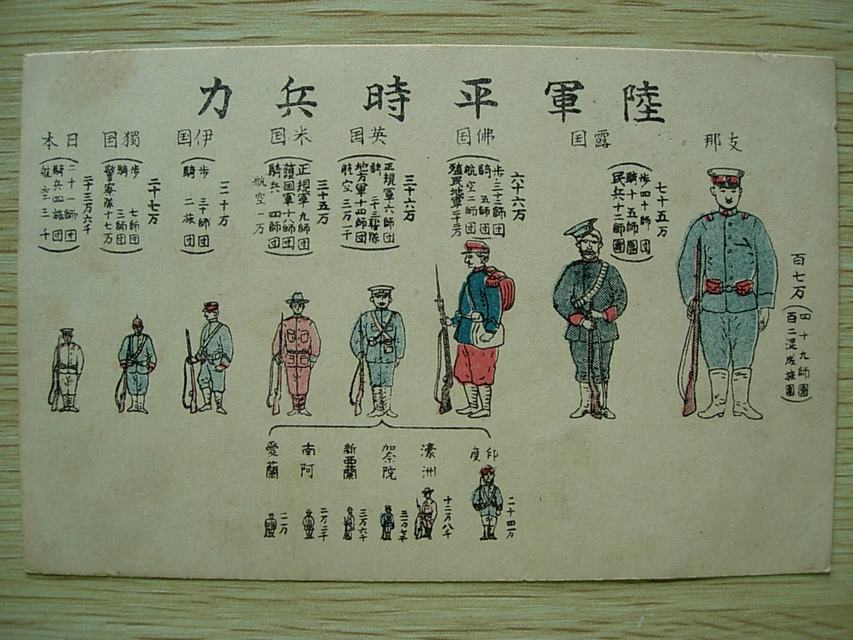 陸軍平時兵力
支那
百七万
(四十九師團
百二混成旅團)
露国
七十五万
(歩四十師団
騎十五師團
民兵十二師團)
佛国
六十六万
(歩三十三師団
騎 五師団
航空二師団
英国
三十六万
(正規軍六師団
騎 二十三聯隊
地方軍十四師団
航空三万一千)
米国
三十五万
(正規軍九師団
護国軍十八師団
騎兵 四師団)
航空一万
伊国
三十万
(歩 三十師団
騎 二旅団)
獨国
二十七万
(歩 七師団
騎 三師団
警察隊十七万)
日本
二十三万六千
(二十一師団
騎兵四旅団
航空三千)
印度
二十四万
濠洲
十二万八千
加奈陀
新西蘭
三万六千
南阿
二万二千
愛蘭
二万